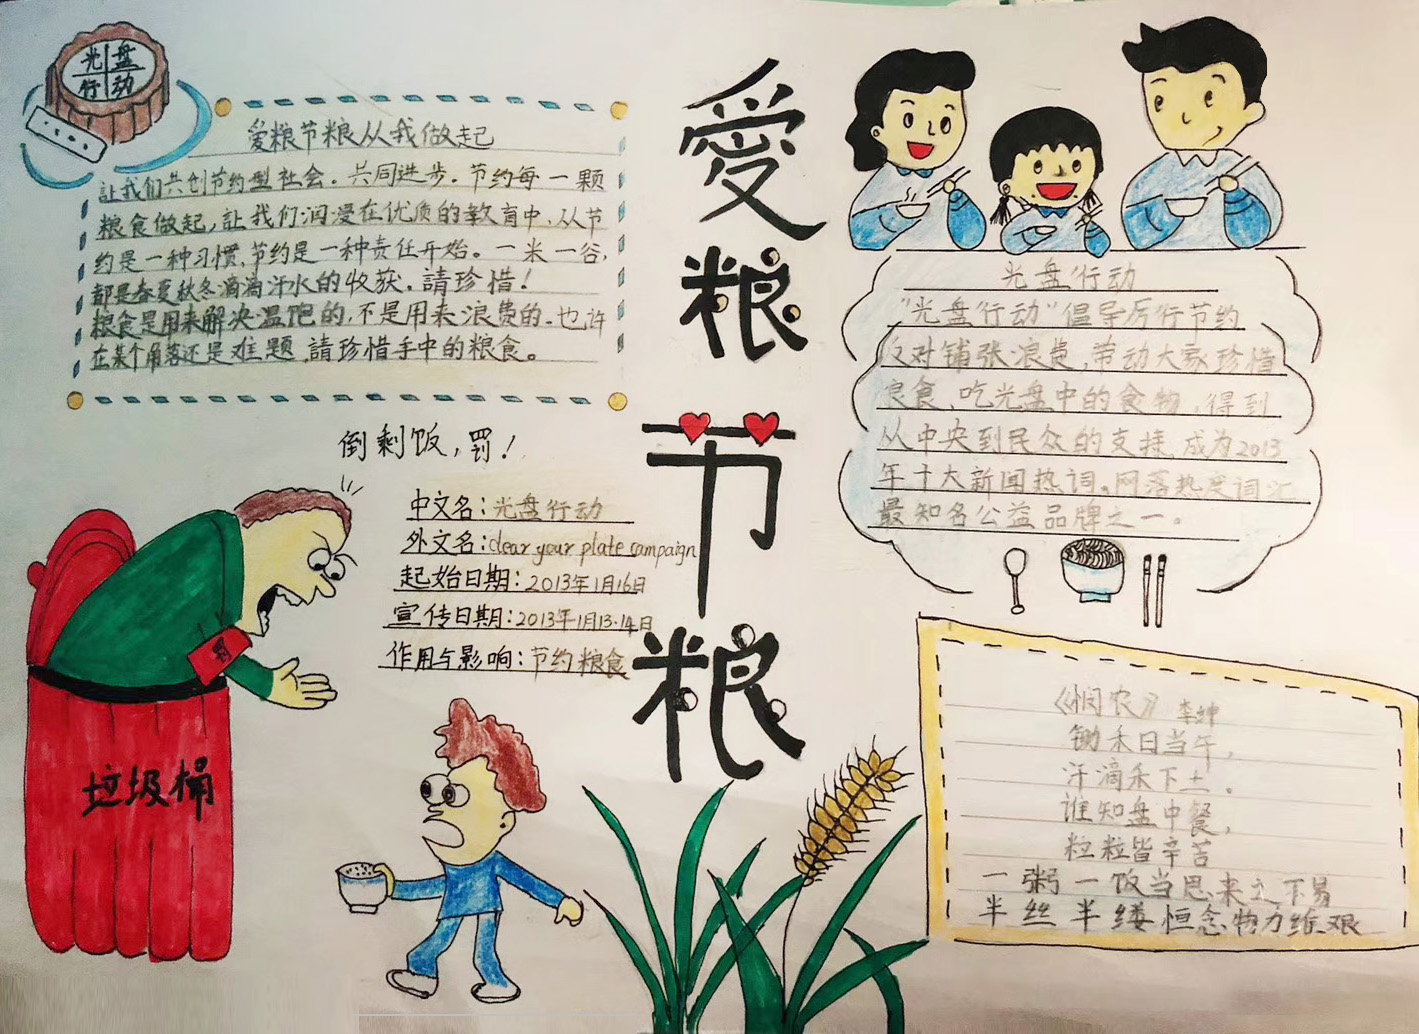 光盘
行动
爱粮节粮从我做起
讓我们共创节约型社会。共同进步。节约每一颗
粮食做起,讓我们润浸在优质的教育中,从节
约是一种习惯,节约是一种责任开始。一米一谷,
都是春夏秋冬滴滴汗水的收获,請珍惜!
粮食是用来解决温饱的,不是用来浪费的。也许
在某个角落还是难题,請珍惜手中的粮食。
愛粮节粮
倒剩饭,罚!
中文名:光盘行动
外文名:clear your plate campaign
起始日期:2013年1月16日
宣传日期:2013年1月13·14日
作用与影响:节约粮食
罚
垃圾桶
光盘行动
"光盘行动"倡导厉行节约
反对铺张浪费,带动大家珍惜
粮食、吃光盘中的食物,得到
从中央到民众的支持,成为2013
年十大新闻热词。网落热度词汇
最知名公益品牌之一。
《悯农》 李绅
锄禾日当午,
汗滴禾下土。
谁知盘中餐,
粒粒皆辛苦
一粥一饭当思来之不易
半丝半缕恒念物力维艰